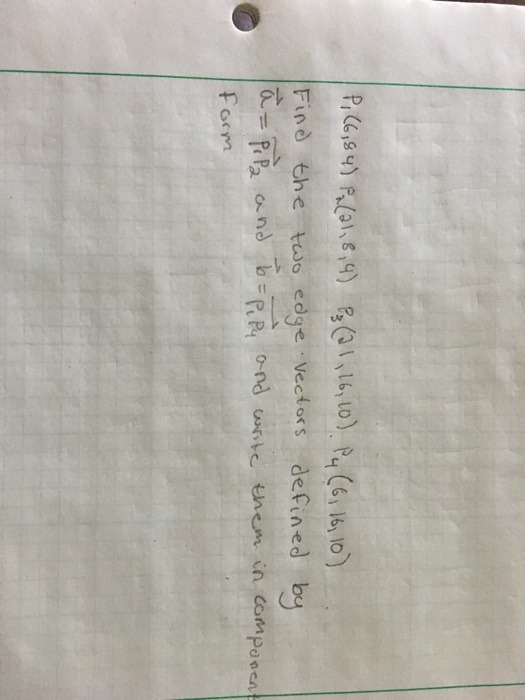 P₁(6,8,4) P₂(21,8,4) P₃(21,16,10). P₄(6,16,10)
Find the two edge vectors defined by
a⃗ = P₁P₂ and b⃗ = P₁P₄ and write them in component
form